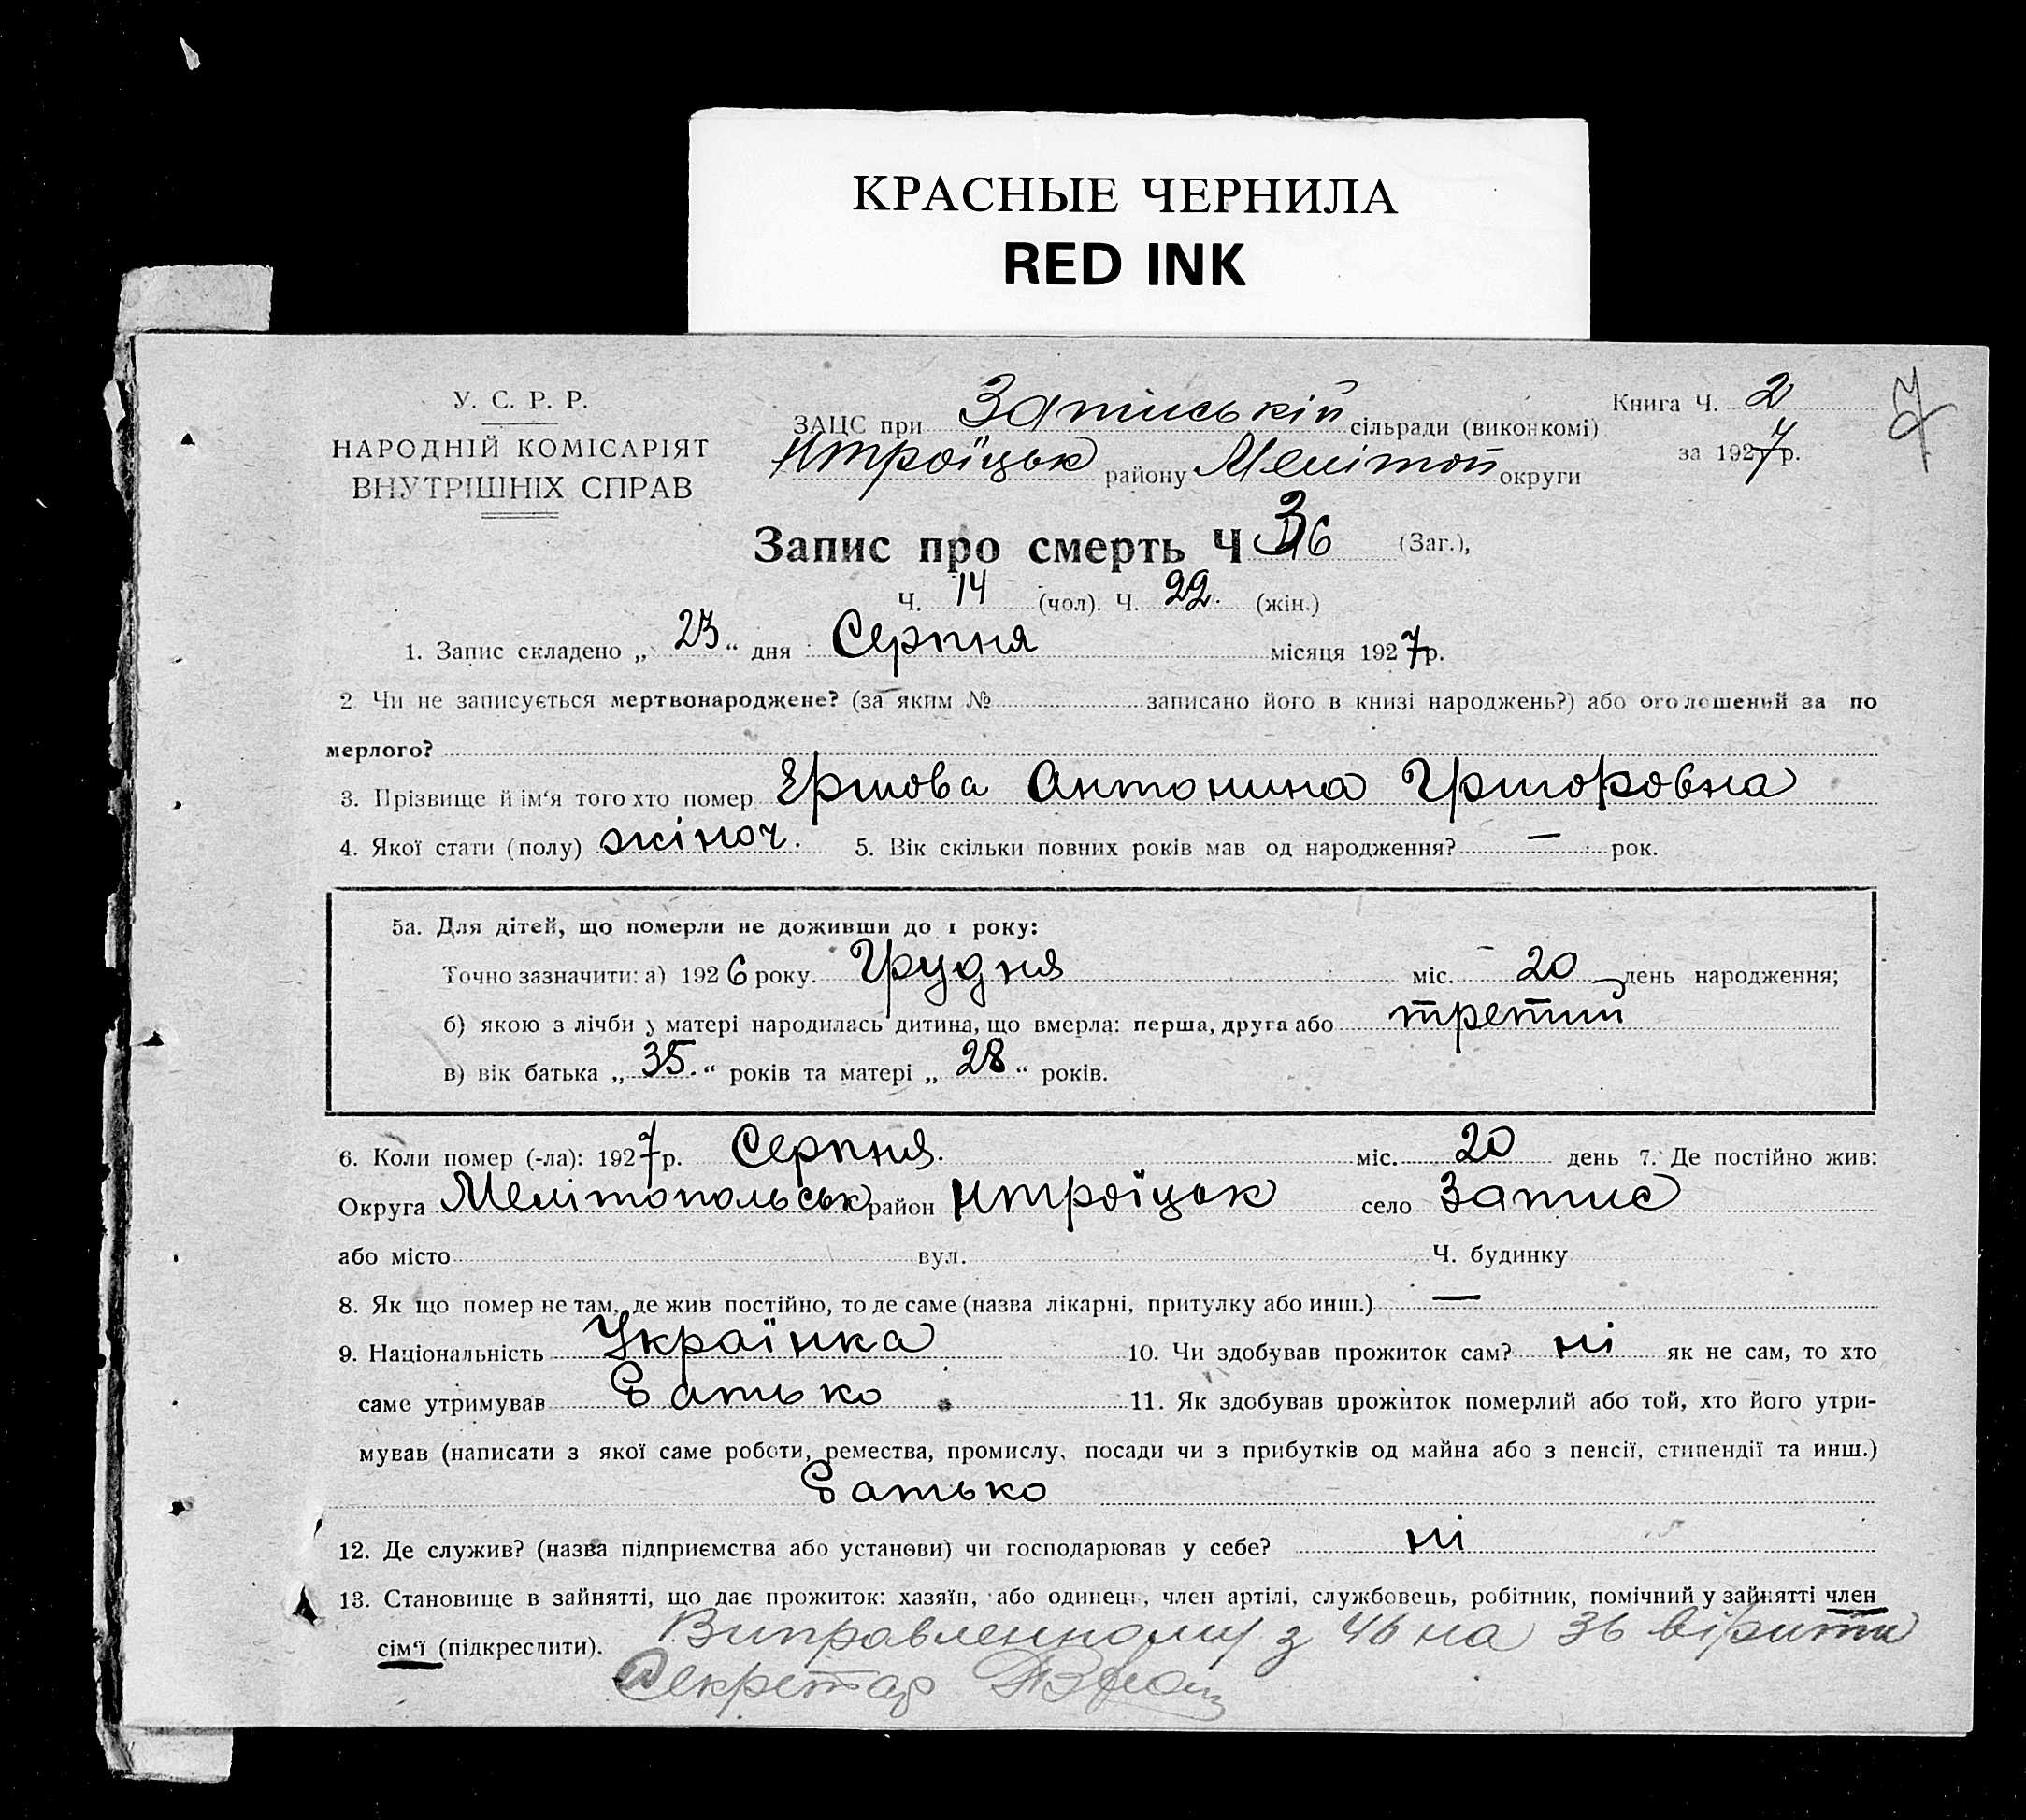 КРАСНЫЕ ЧЕРНИЛА
RED INK
У. С. Р. Р.
НАРОДНІЙ КОМІСАРІЯТ
ВНУТРІШНІХ СПРАВ
ЗАЦС при Затиській сільради (виконкомі)
Нтроїцьк району Мелітоп округи
Книга Ч. 2
за 1927 р.
7
Запис про смерть Ч 36 (Заг.),
Ч. 14 (чол). Ч. 22. (жін.)
1. Запис складено „ 23 “ дня Серпня місяця 1927 р.
2 Чи не записується мертвонароджене? (за яким № записано його в книзі народжень?) або оголошений за по
мерлого?
3. Прізвище й ім‘я того хто помер Ершова Антонина Григоровна
4. Якої стати (полу) жіноч. 5. Вік скільки повних років мав од народження? — рок.
5а. Для дітей, що померли не доживши до 1 року:
Точно зазначити: а) 1926 року. Грудня міс. 20 день народження;
б) якою з лічби у матері народилась дитина, що вмерла: перша, друга або третий
в) вік батька „ 35. “ років та матері „ 28 “ років.
6. Коли помер (-ла): 1927 р. Серпня. міс. 20 день 7. Де постійно жив:
Округа Мелітопольськ район Нтроїцьк село Затис
або місто вул. Ч. будинку
8. Як що помер не там, де жив постійно, то де саме (назва лікарні, притулку або инш.) —
9. Національність Українка 10. Чи здобував прожиток сам? ні як не сам, то хто
саме утримував батько 11. Як здобував прожиток померлий або той, хто його утри-
мував (написати з якої саме роботи, ремества, промислу, посади чи з прибутків од майна або з пенсії, стипендії та инш.)
батько
12. Де служив? (назва підприємства або установи) чи господарював у себе? ні
13. Становище в зайнятті, що дає прожиток: хазяїн, або одинець, член артілі, службовець, робітник, помічний у зайнятті член
сім‘ї (підкреслити). Виправленному з 46 на 36 вірити
Секретар